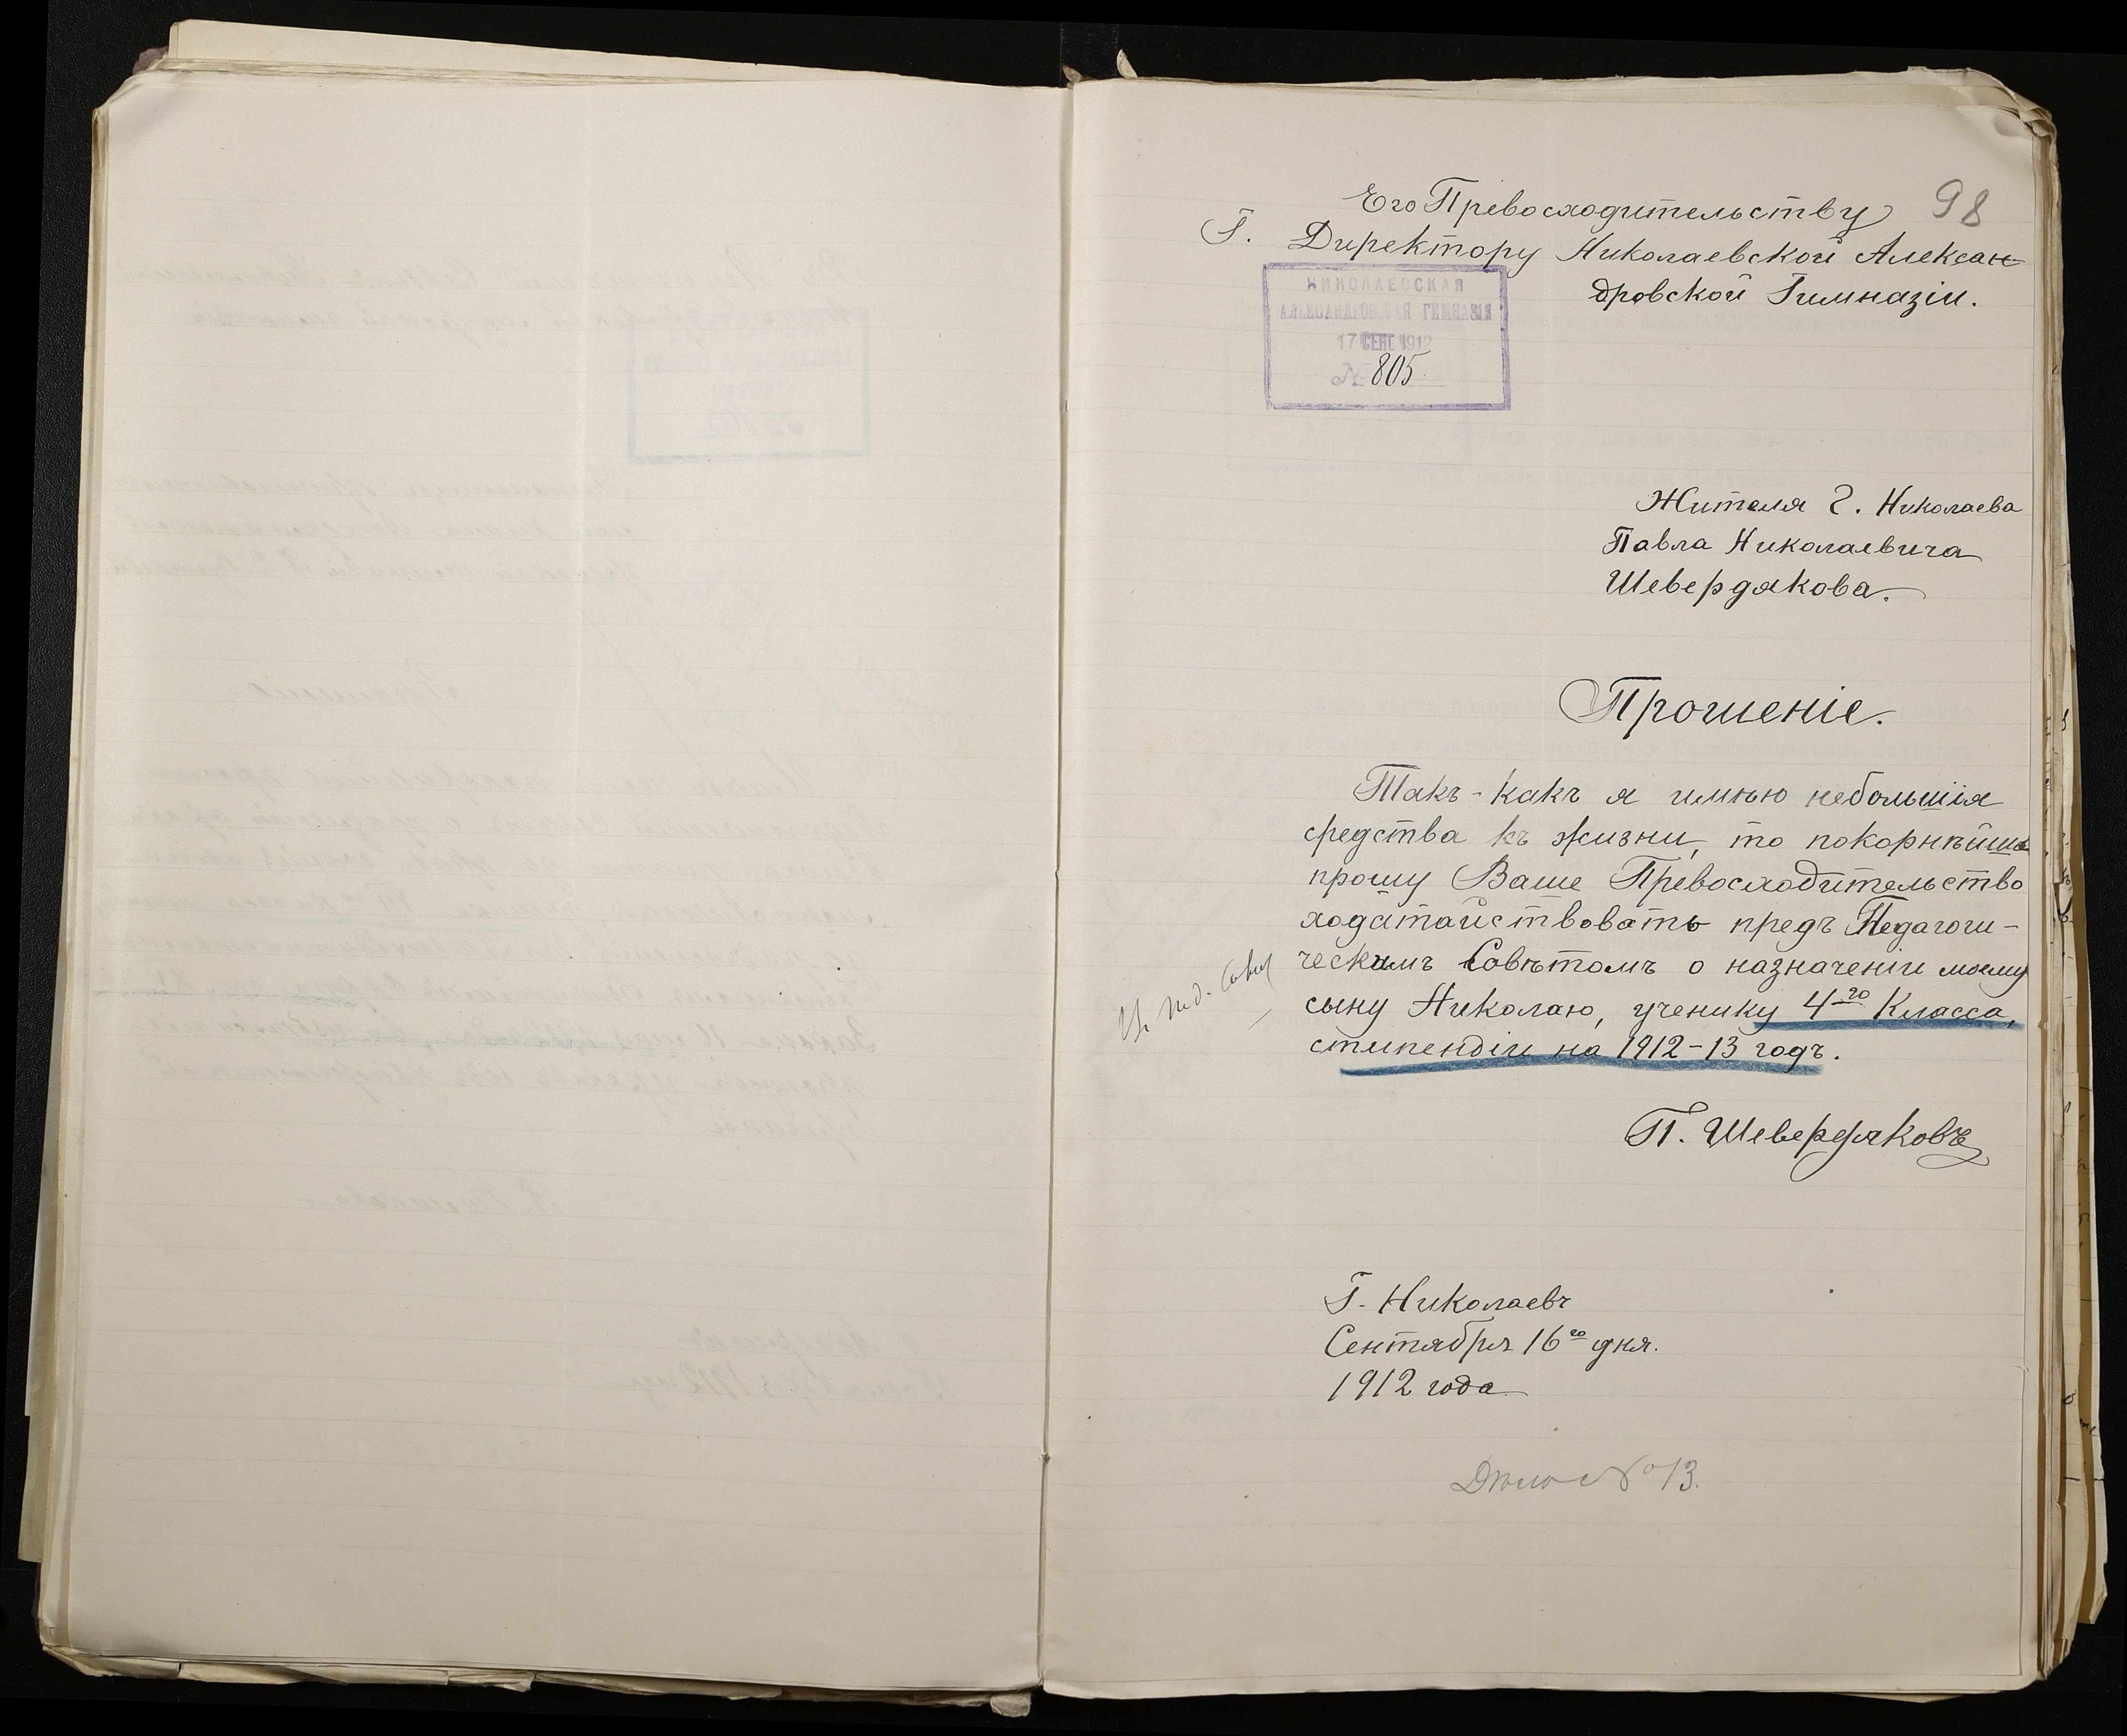 98
Его Превосходительству
Г. Директору Николаевской Алексан
дровской Гимназіи.
НИКОЛАЕВСКАЯ
АЛЕКСАНДРОВСКАЯ ГИМНАЗІЯ
17 СЕНТ. 1912
№ 805
Жителя г. Николаева
Павла Николаевича
Шевердякова.
Прошеніе.
Такъ-какъ я имѣю небольшія
средства къ жизни, то покорнѣйше
прошу Ваше Превосходительство
ходатайствовать предъ Педагоги-
ческимъ Совѣтомъ о назначеніи моему
сыну Николаю, ученику 4го Класса,
стипендіи на 1912-13 годъ.
П. Шевердяковъ
Г. Николаевъ
Сентября 16го дня.
1912 года
Дѣло № 13.